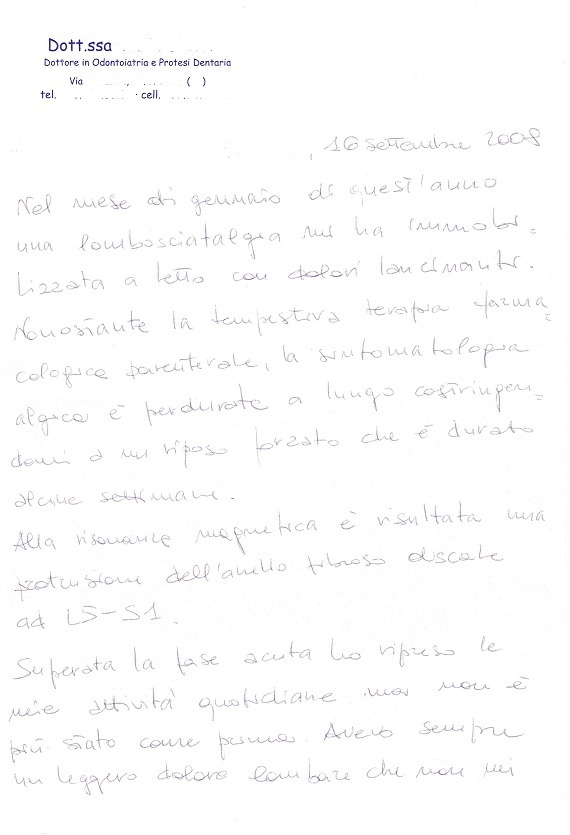 Dott.ssa
Dottore in Odontoiatria e Protesi Dentaria
Via ( )
tel. cell.
16 settembre 2008
Nel mese di gennaio di quest'anno
una lombosciatalgia mi ha immobi=
lizzata a letto con dolori lancinanti.
Nonostante la tempestiva terapia farma=
cologica parenterale, la sintomatologia
algica è perdurata a lungo costringen=
domi a un riposo forzato che è durato
alcune settimane.
Alla risonanza magnetica è risultata una
protrusione dell'anello fibroso discale
ad L5-S1.
Superata la fase acuta ho ripreso le
mie attività quotidiane ma non è
più stato come prima. Avevo sempre
un leggero dolore lombare che non mi